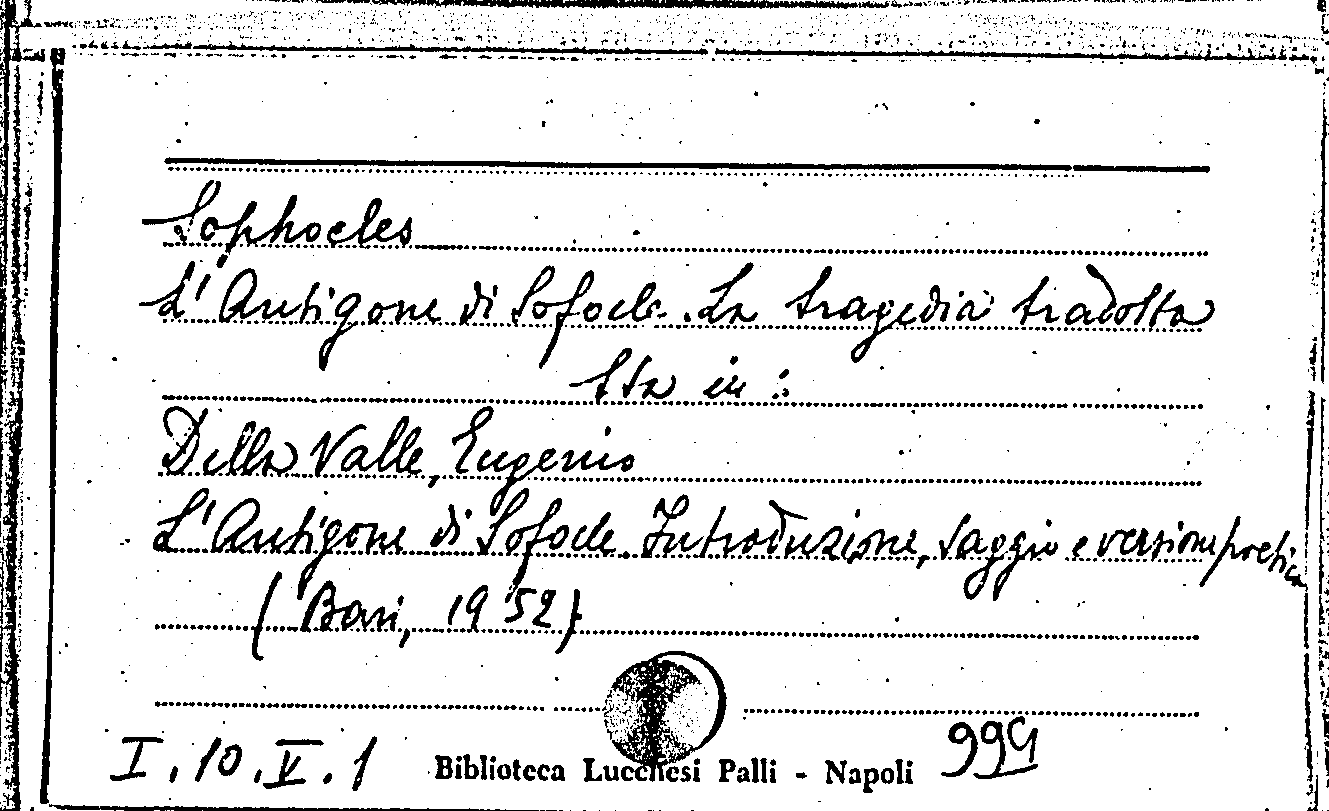 Sophocles
L'Antigone di Sofocle. La tragedia tradotta
Sta in:
Della Valle, Eugenio
L'Antigone di Sofocle. Introduzione, saggio e versione poetica
(Bari, 1952)
I.10.V.1 Biblioteca Lucchesi Palli - Napoli 999